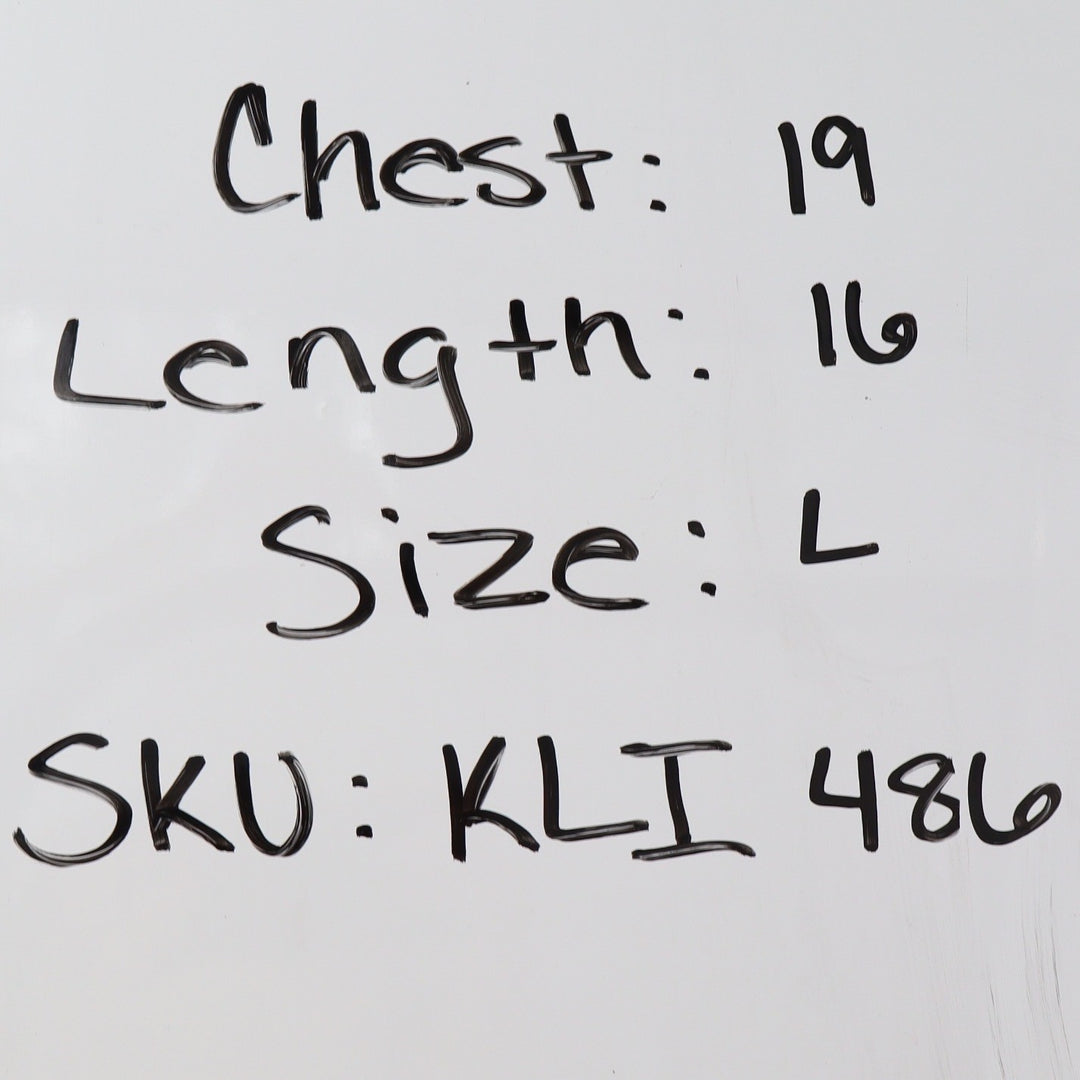 Chest: 19
Length: 16
Size: L
SKU: KLI 486